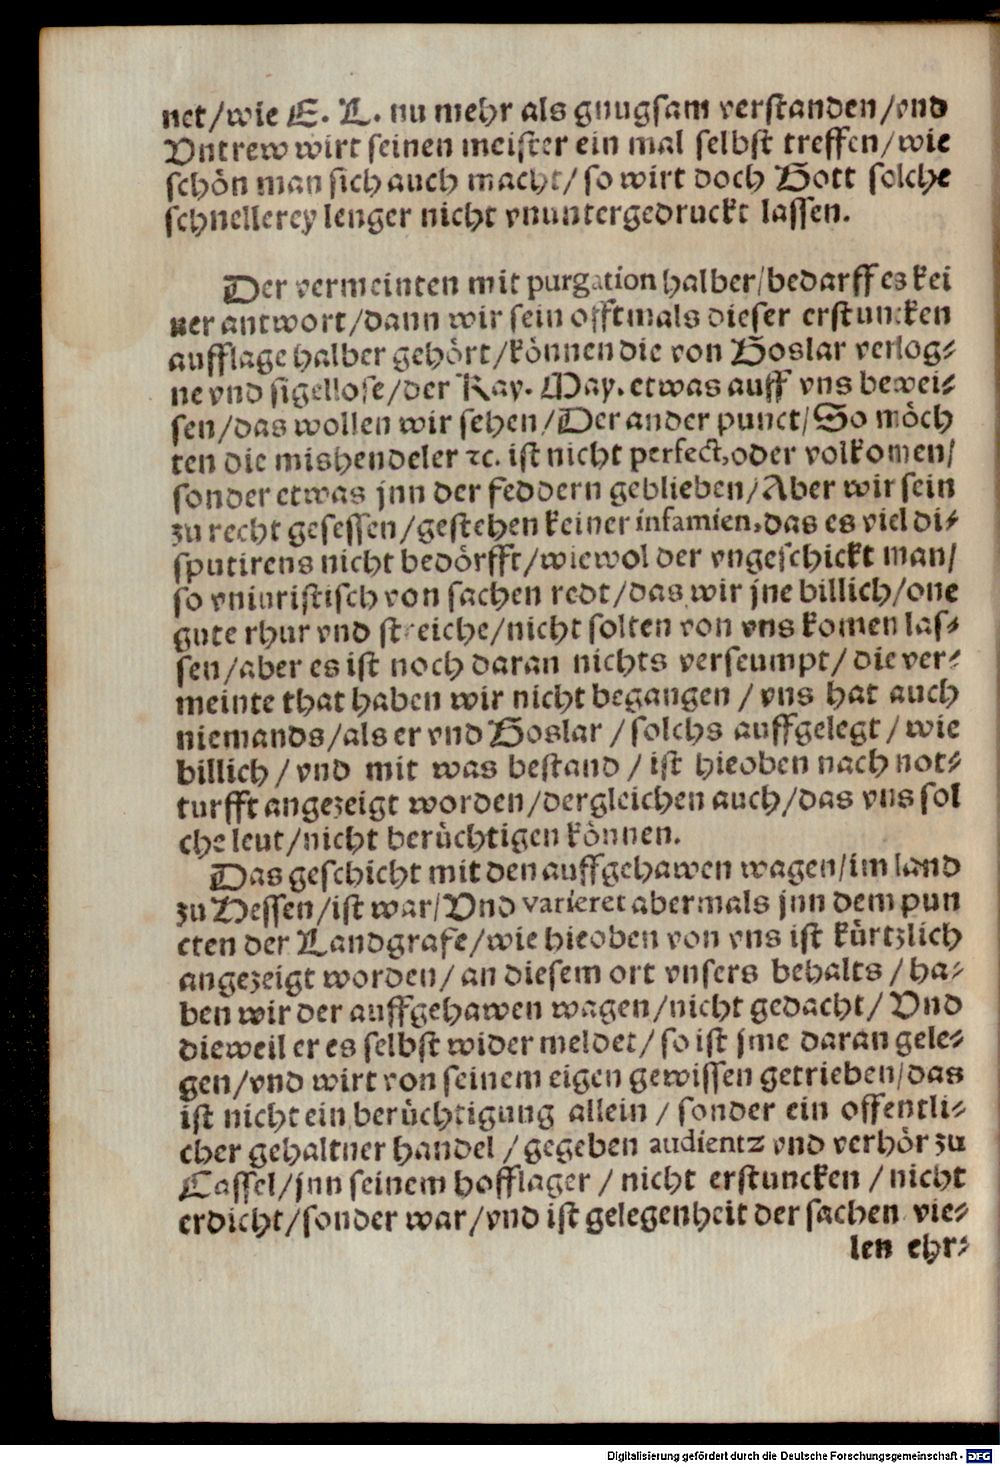 net/wie E. L. nu mehr als gnugsam verstanden/vnd
Vntrew wirt seinen meister ein mal selbst treffen/wie
schön man sich auch macht/ so wirt doch Gott solche
schnellerey lenger nicht vnuntergedruckt lassen.
Der vermeinten mit purgation halber/bedarff es kei
ner antwort/dann wir sein offtmals dieser erstuncken
aufflage halber gehört/können die von Goslar verlog⸗
ne vnd sigellose/der Kay. May. etwas auff vns bewei⸗
sen/das wollen wir sehen/Der ander punct/So möch
ten die mishendeler ꝛc. ist nicht perfect, oder volkomen/
sonder etwas jnn der feddern geblieben/Aber wir sein
zu recht gesessen/gestehen keiner infamien, das es viel di⸗
sputirens nicht bedörfft/wiewol der vngeschickt man/
so vniuristisch von sachen redt/das wir jne billich/one
gute rhur vnd streiche/nicht solten von vns komen las⸗
sen/aber es ist noch daran nichts verseumpt/ die ver⸗
meinte that haben wir nicht begangen / vns hat auch
niemands/als er vnd Goslar / solchs auffgelegt / wie
billich / vnd mit was bestand / ist hieoben nach not⸗
turfft angezeigt worden/dergleichen auch/das vns sol
che leut/nicht berüchtigen können.
Das geschicht mit den auffgehawen wagen/im land
zu Hessen/ist war/Vnd varieret abermals jnn dem pun
cten der Landgrafe/wie hieoben von vns ist kürtzlich
angezeigt worden/ an diesem ort vnsers behalts / ha⸗
ben wir der auffgehawen wagen/nicht gedacht/ Vnd
dieweil er es selbst wider meldet/ so ist jme daran gele⸗
gen/vnd wirt von seinem eigen gewissen getrieben/das
ist nicht ein berüchtigung allein / sonder ein offentli⸗
cher gehaltner handel / gegeben audientz vnd verhör zu
Cassel/jnn seinem hofflager / nicht erstuncken / nicht
erdicht/sonder war/vnd ist gelegenheit der sachen vie⸗
len ehr⸗
Digitalisierung gefördert durch die Deutsche Forschungsgemeinschaft - DFG